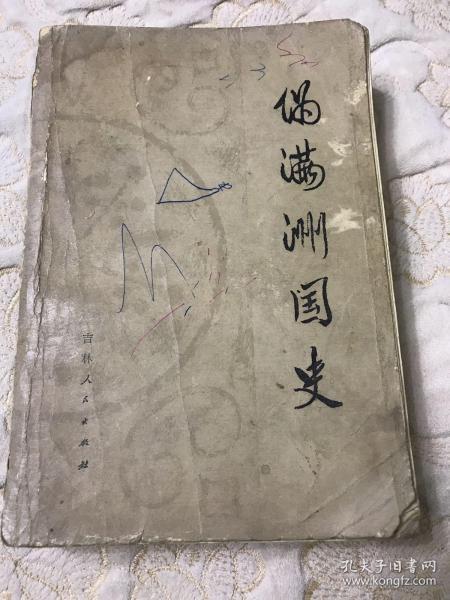 伪满洲国史
吉林人民出版社
孔夫子旧书网
www.kongfz.com